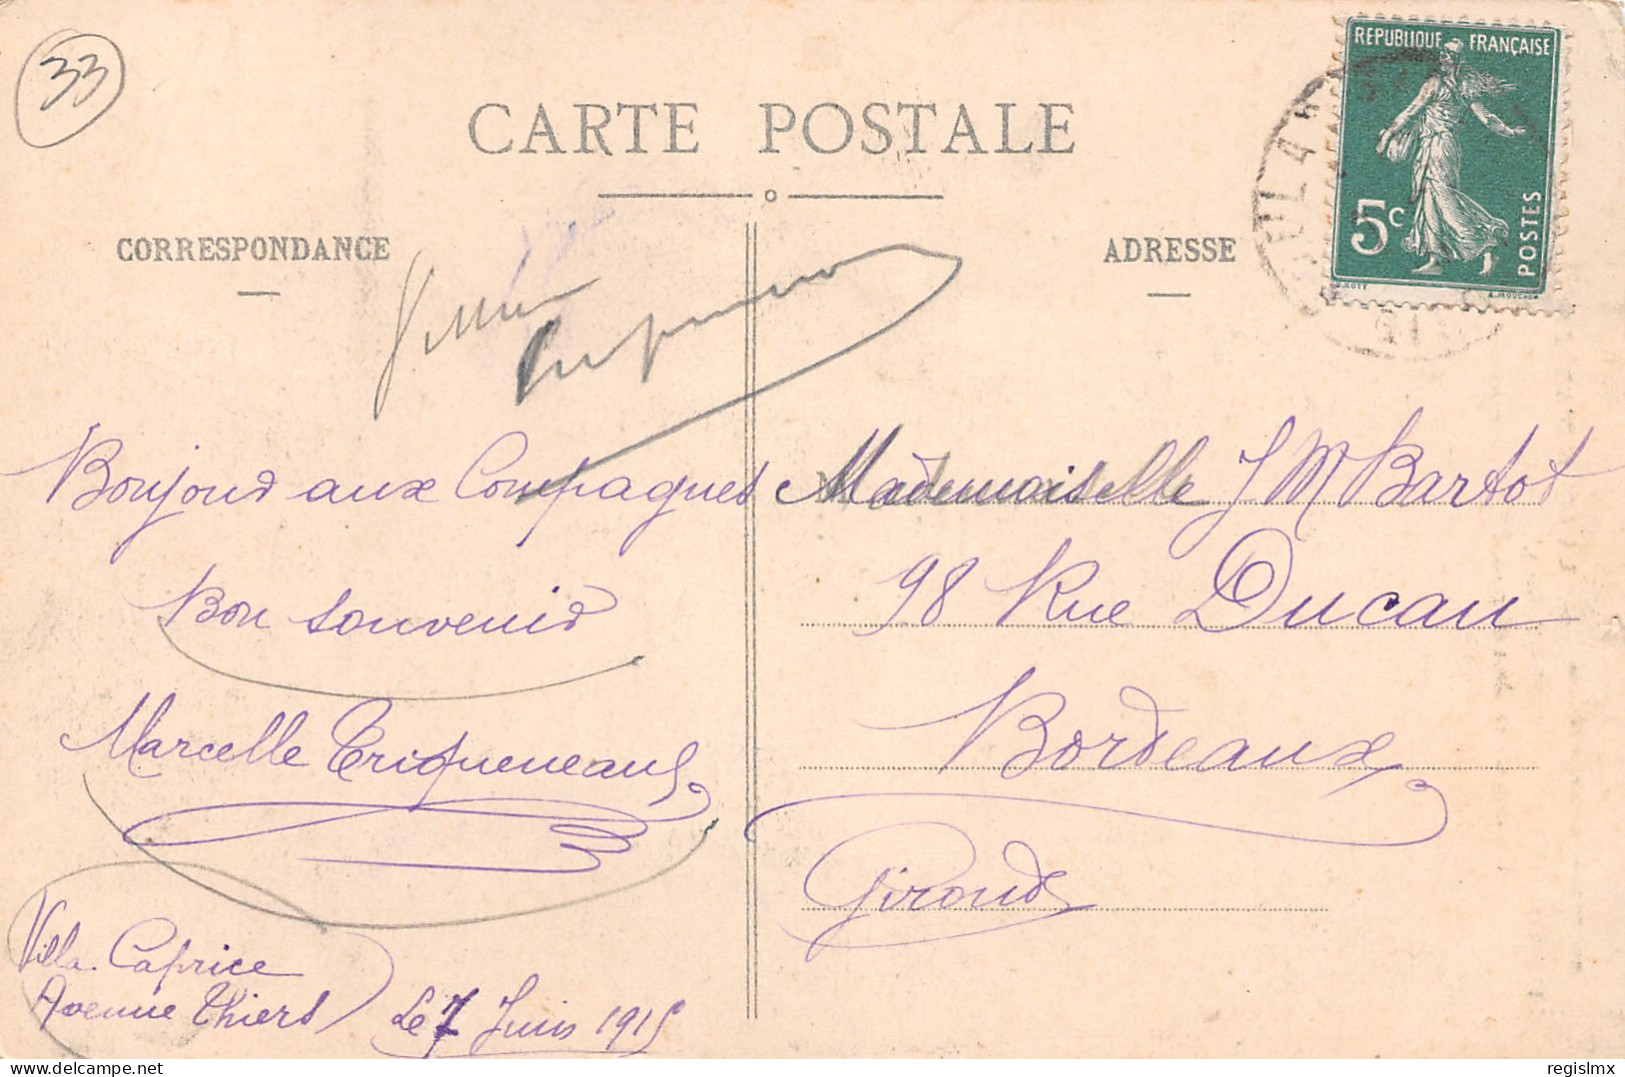 33
CARTE POSTALE
REPUBLIQUE FRANÇAISE
5c
POSTES
O. ROTY
E. MOUCHON
CORRESPONDANCE
ADRESSE
Bonjour aux Compagnes
Bon souvenir
Marcelle Triqueneaux
Villa Caprice
Avenue Thiers
Le 7 Juin 1915
Mademoiselle J M Bartot
98 Rue Ducau
Bordeaux
Gironde
regislmx